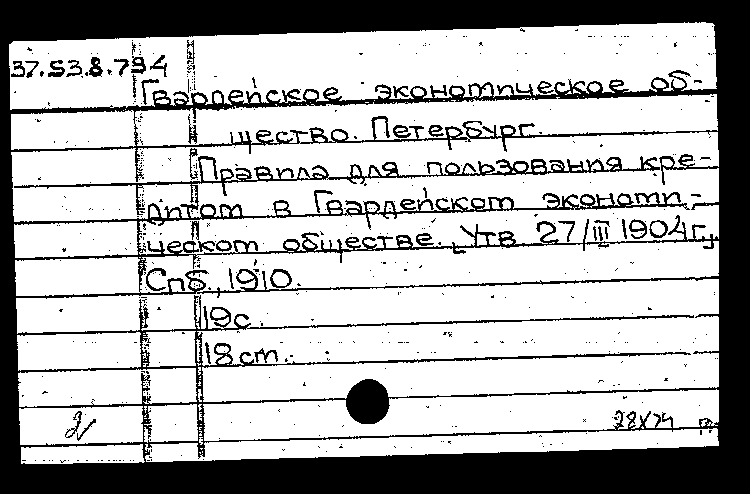 37.53.8.794
Гвардейское экономическое об-
щество. Петербург.
Правила для пользования кре-
дитом в Гвардейском экономи-
ческом обществе. [Утв 27/III 1904г.]
Спб., 1910.
19с.
18 cm.
28X74